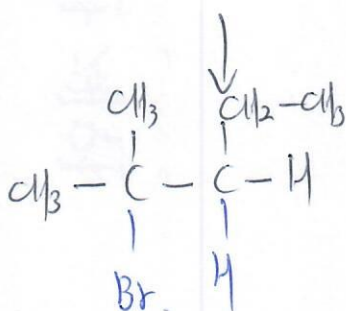 CH3 CH2-CH3
CH3 - C - C - H
Br. H